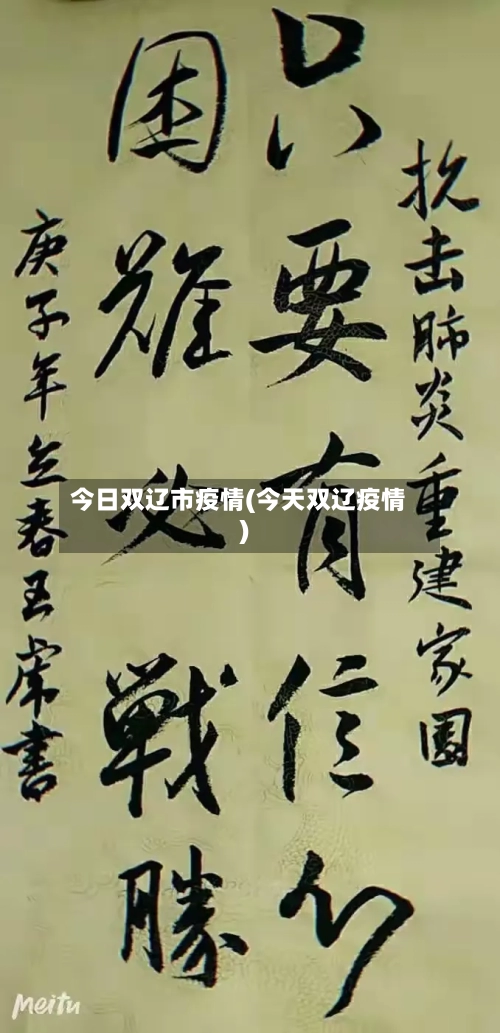 抗击肺炎重建家园
只要有信心
困難必戰勝
庚子年立春王席書
今日双辽市疫情(今天双辽疫情
)
Meitu